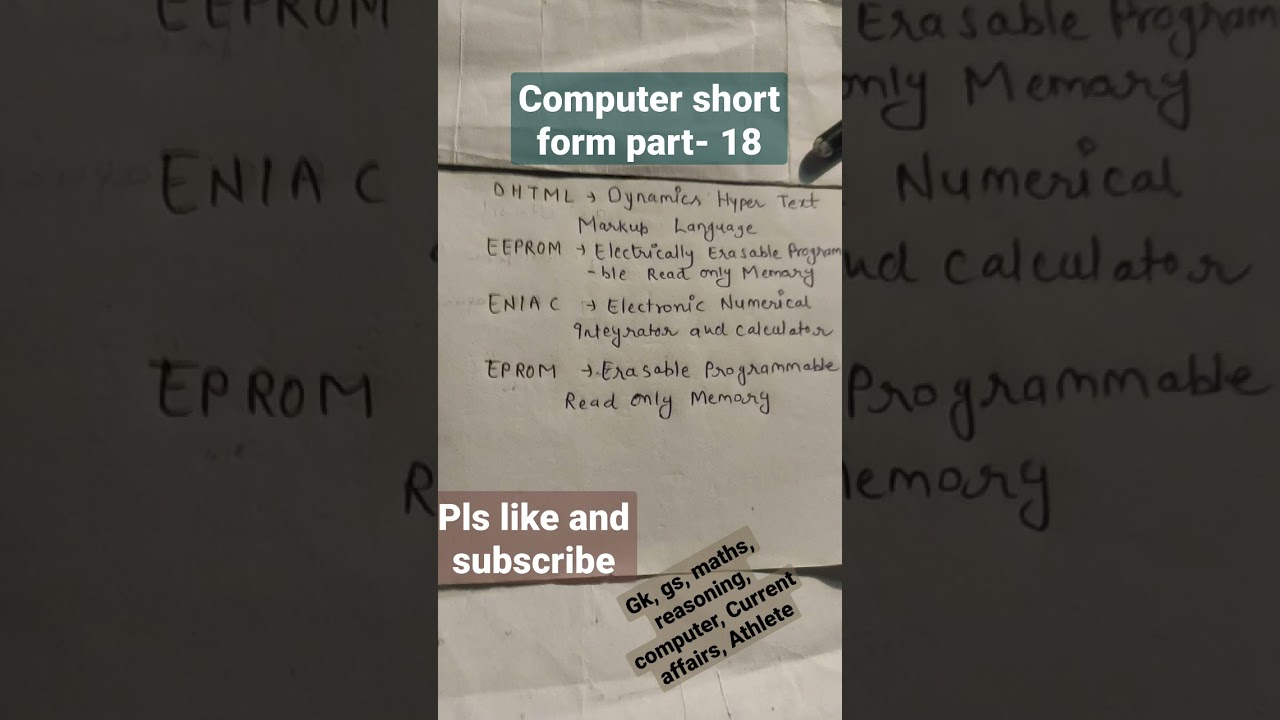 Computer short
form part- 18
DHTML → Dynamics Hyper Text
Markup Language
EEPROM → Electrically Erasable Program
-ble Read only Memary
ENIAC → Electronic Numerical
Integrator and calculator
EPROM → Erasable Programmable
Read only Memory
Pls like and
subscribe
Gk, gs, maths,
reasoning,
computer, Current
affairs, Athlete
EEPROM
ENIAC
EPROM
R
Erasable Program
only Memary
Numerical
and calculator
Programmable
Memory